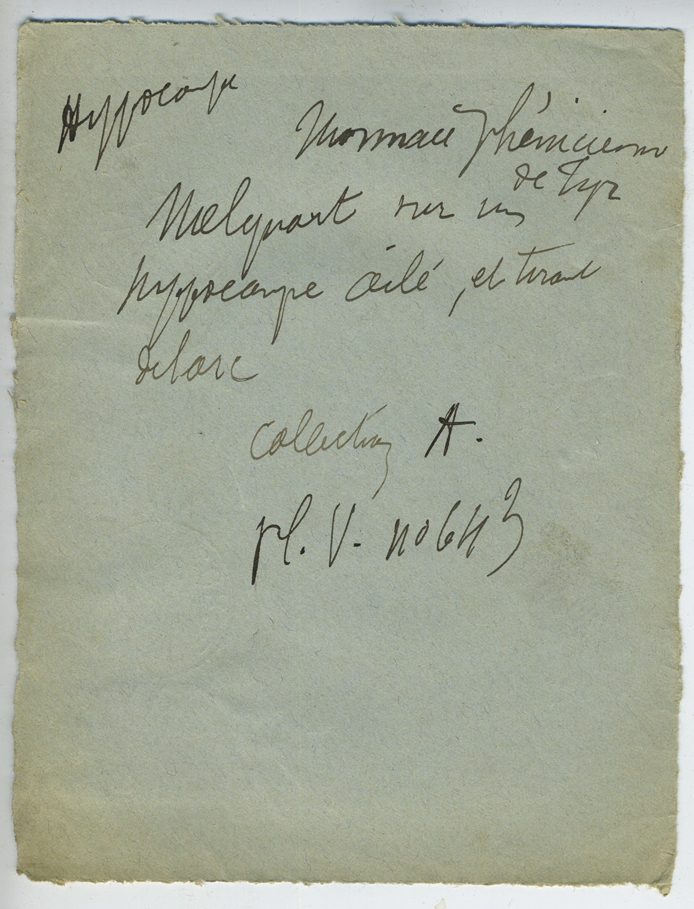 Hyppocampe
Monnaie phénicienne
de Tyr
Melqart sur un
hyppocampe ailé, et tirant
de l'arc
Collection A.
pl. V. no